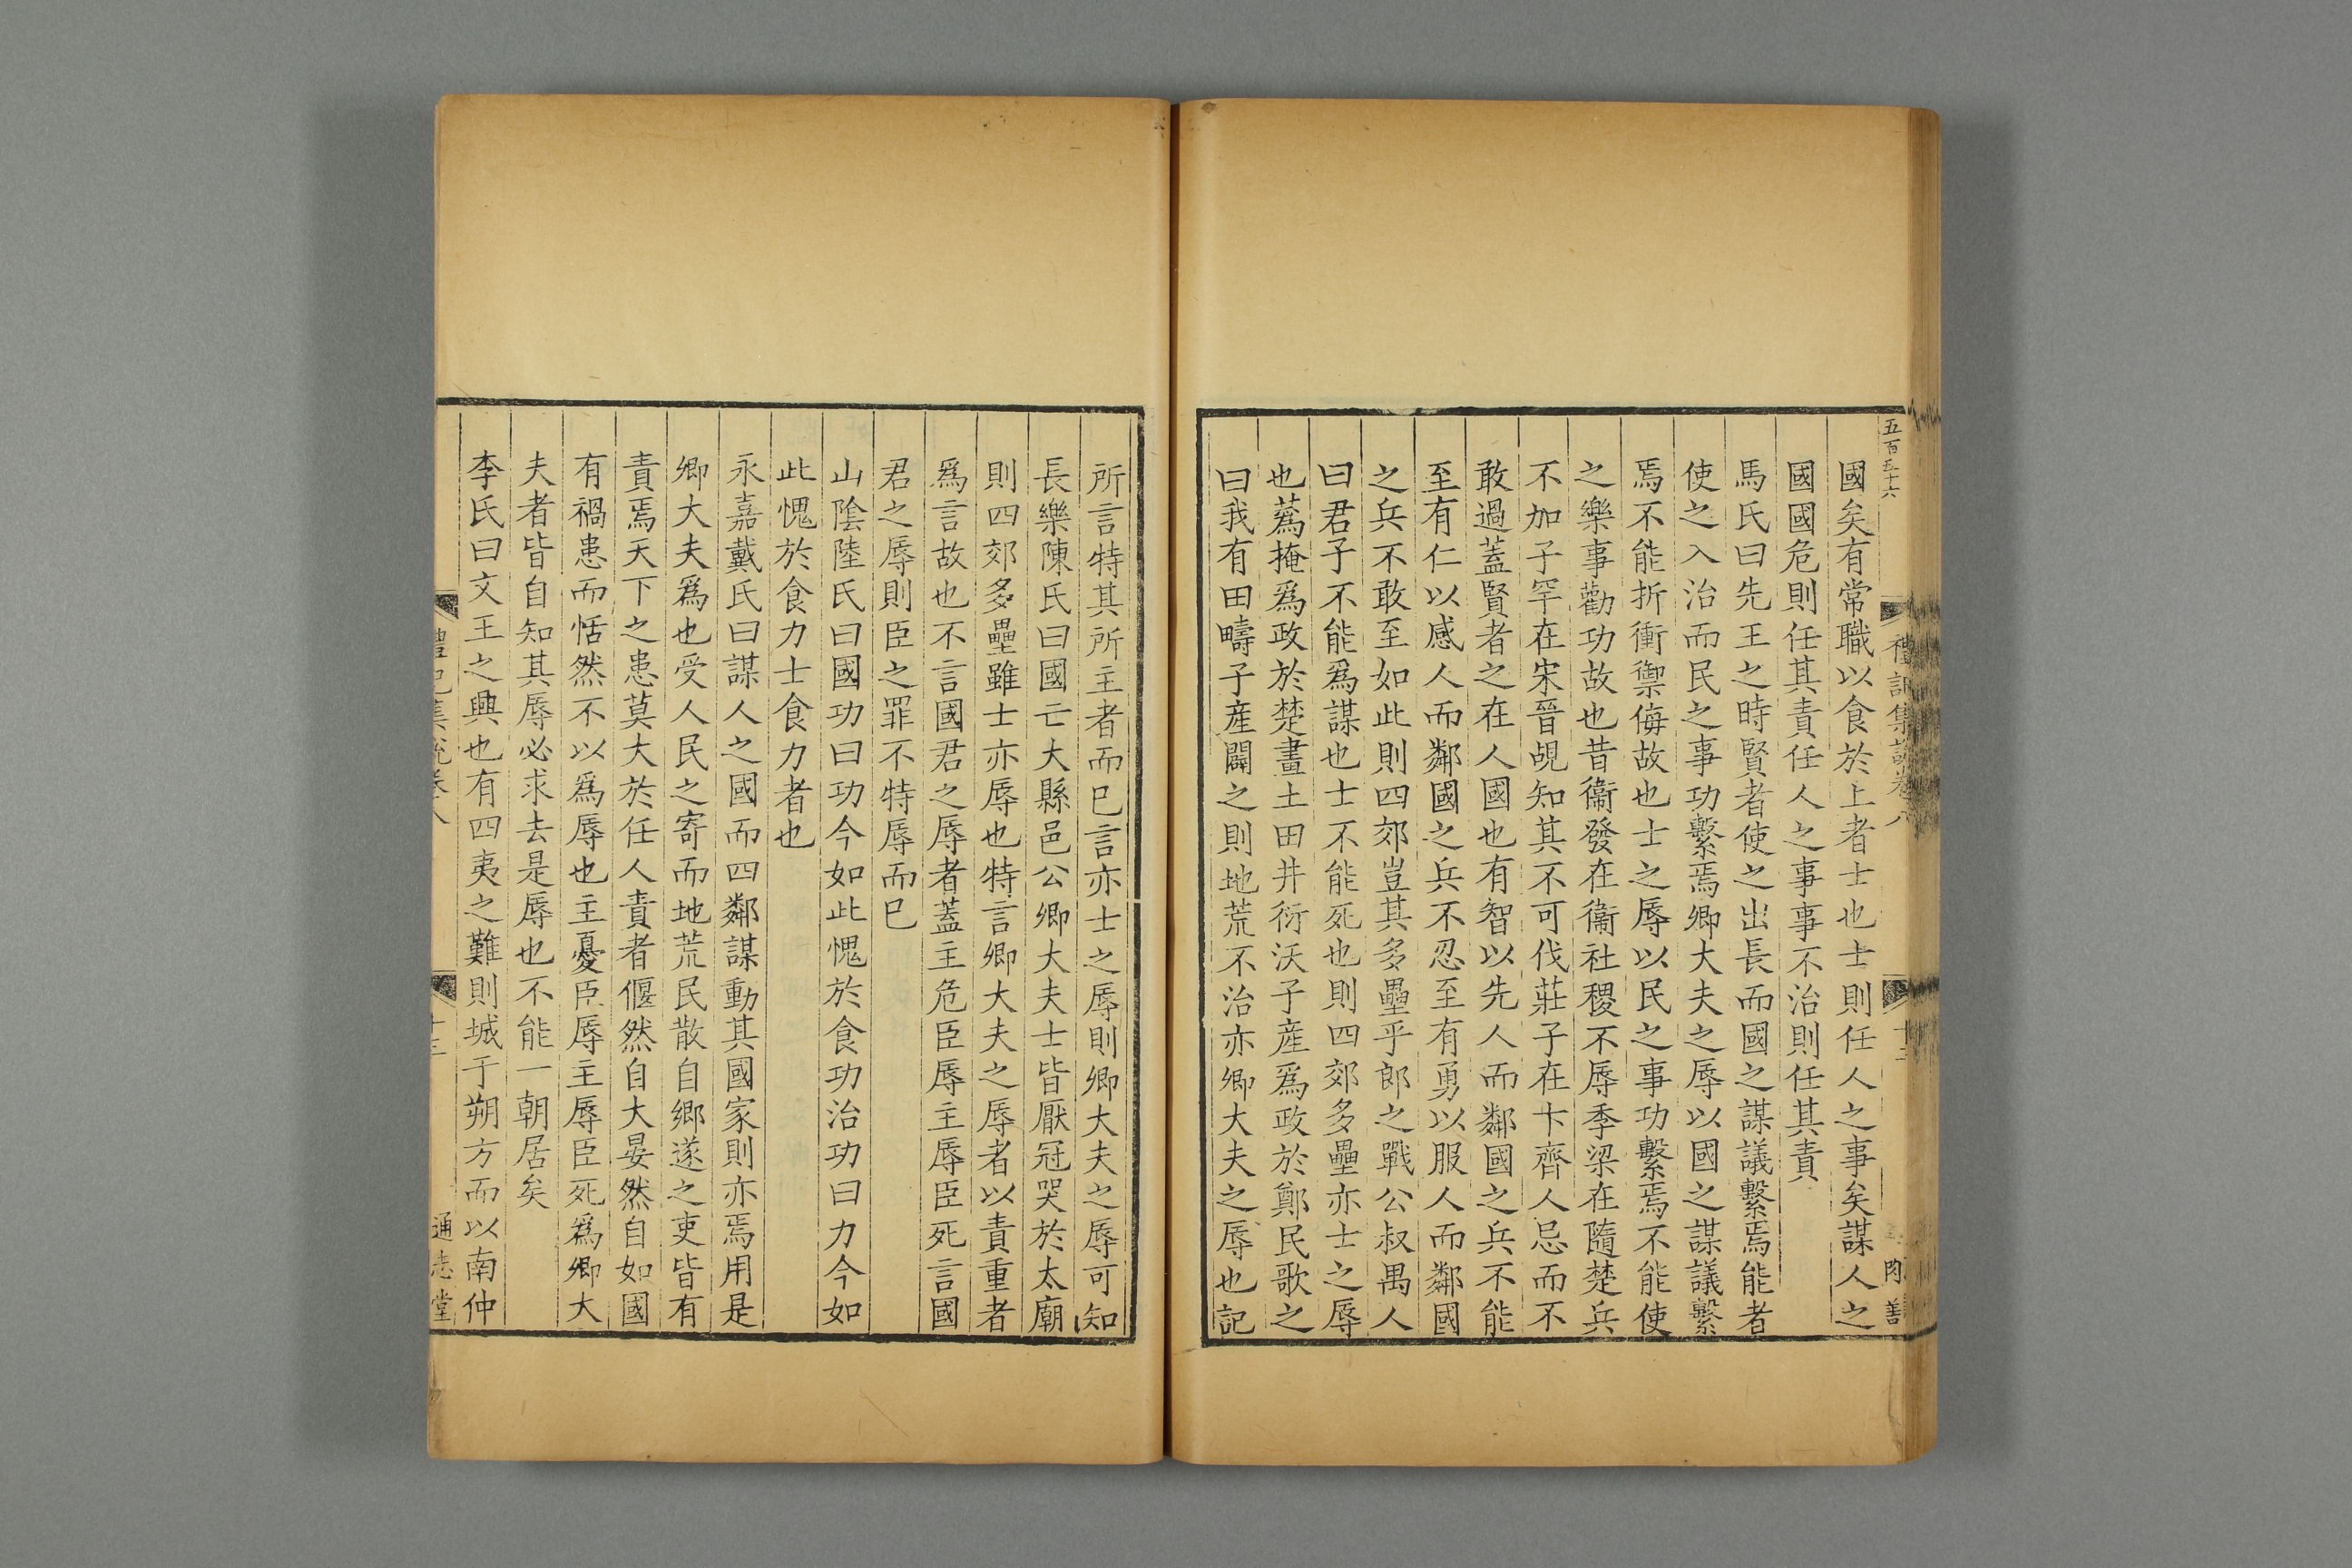 五百五十六
禮記集說卷八
國矣有常職以食於上者士也士則任人之事矣謀人之
國國危則任其責任人之事事不治則任其責
馬氏曰先王之時賢者使之出長而國之謀議繫焉能者
使之入治而民之事功繫焉卿大夫之辱以國之謀議繫
焉不能折衝禦侮故也士之辱以民之事功繫焉不能使
之樂事勸功故也昔衞發在衞社稷不辱季梁在隨楚兵
不加子罕在宋晉覘知其不可伐莊子在卞齊人忌而不
敢過蓋賢者之在人國也有智以先人而鄰國之兵不能
至有仁以感人而鄰國之兵不忍至有勇以服人而鄰國
之兵不敢至如此則四郊豈其多壘乎郎之戰公叔禺人
曰君子不能爲謀也士不能死也則四郊多壘亦士之辱
也蒍掩爲政於楚書土田井衍沃子產爲政於鄭民歌之
曰我有田疇子產闢之則地荒不治亦卿大夫之辱也記
所言特其所主者而巳言亦士之辱則卿大夫之辱可知
長樂陳氏曰國亡大縣邑公卿大夫士皆厭冠哭於太廟
則四郊多壘雖士亦辱也特言卿大夫之辱者以責重者
爲言故也不言國君之辱者蓋主危臣辱主辱臣死言國
君之辱則臣之罪不特辱而巳
山陰陸氏曰國功曰功今如此愧於食功治功曰力今如
此愧於食力士食力者也
永嘉戴氏曰謀人之國而四鄰謀動其國家則亦焉用是
卿大夫爲也受人民之寄而地荒民散自鄉遂之吏皆有
責焉天下之患莫大於任人責者偃然自大晏然自如國
有禍患而恬然不以爲辱也主憂臣辱主辱臣死爲卿大
夫者皆自知其辱必求去是辱也不能一朝居矣
李氏曰文王之興也有四夷之難則城于朔方而以南仲
禮記集說卷八
十三
通志堂